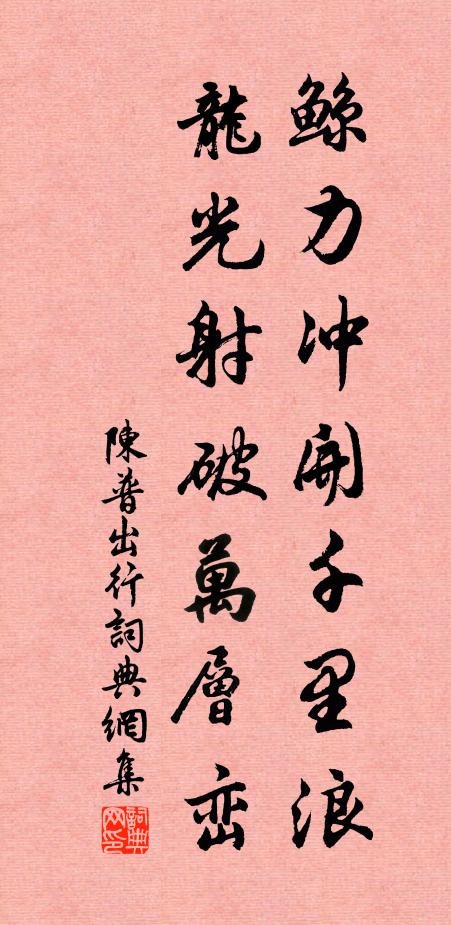 鲸力冲開千里浪
龍光射破萬層峦
陳普出行詞典網集
詞典网印